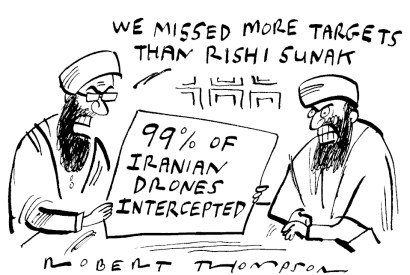 WE MISSED MORE TARGETS
THAN RISHI SUNAK
99% OF
IRANIAN
DRONES
INTERCEPTED
ROBERT THOMPSON